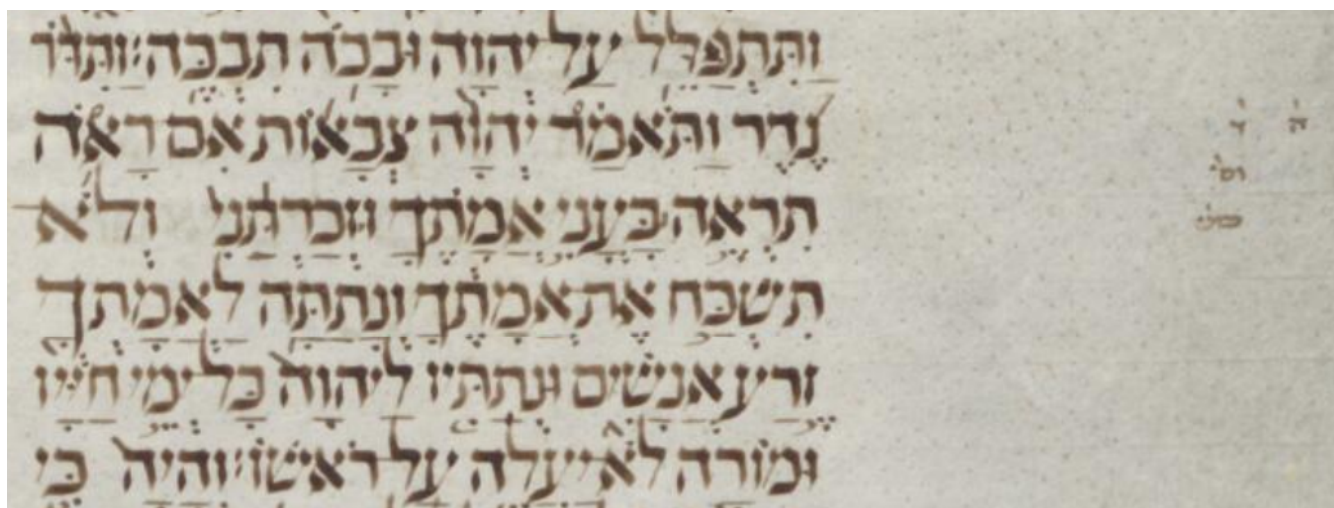 וַתִּתְפַּלֵּל עַל יְהוָה וּבָכֹה תִבְכֶּה׃ וַתִּדֹּר
נֶדֶר וַתֹּאמַר יְהוָה צְבָאוֹת אִם רָאֹה
תִרְאֶה בָּעֳנִי אֲמָתֶךָ וּזְכַרְתַּנִי וְלֹא
תִשְׁכַּח אֶת אֲמָתֶךָ וְנָתַתָּה לַאֲמָתְךָ
זֶרַע אֲנָשִׁים וּנְתַתִּיו לַיהוָה כָּל יְמֵי חַיָּיו
וּמוֹרָה לֹא יַעֲלֶה עַל רֹאשׁוֹ׃ וְהָיָה כִּי